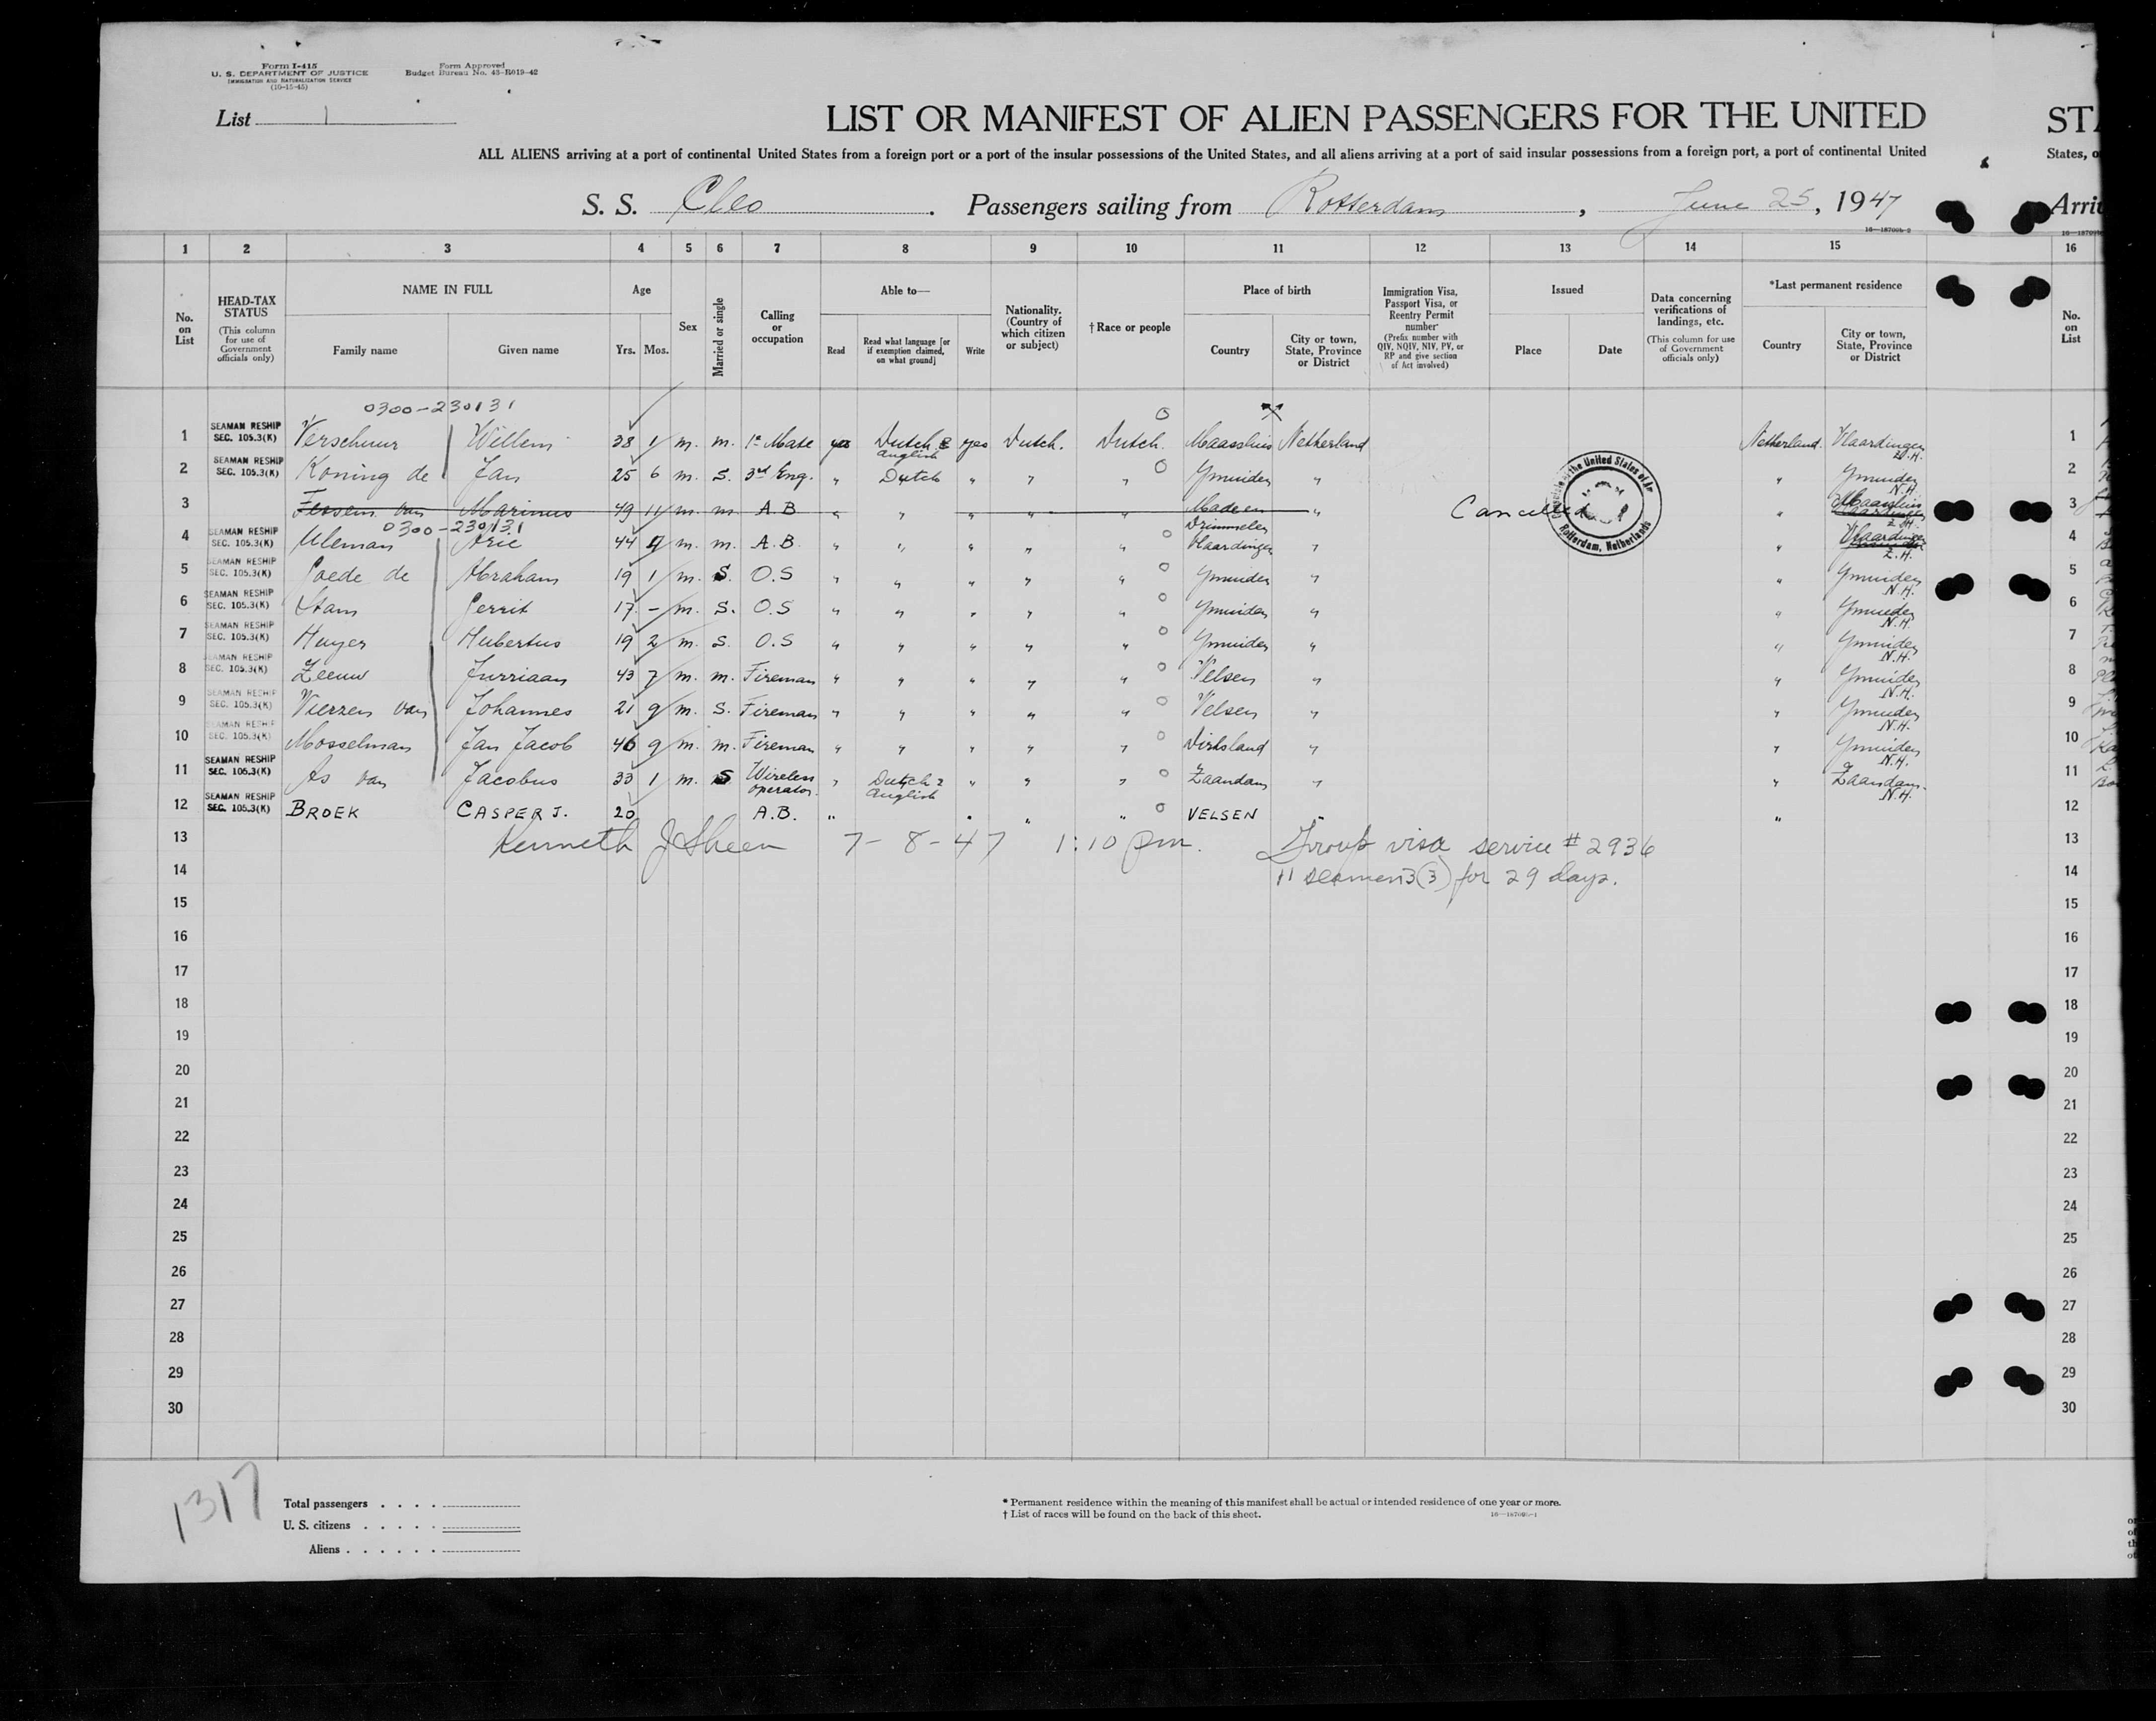 Form I-415
U. S. DEPARTMENT OF JUSTICE
IMMIGRATION AND NATURALIZATION SERVICE
(10-15-45)
Form Approved
Budget Bureau No. 43-R019-42
List 1
LIST OR MANIFEST OF ALIEN PASSENGERS FOR THE UNITED
ALL ALIENS arriving at a port of continental United States from a foreign port or a port of the insular possessions of the United States, and all aliens arriving at a port of said insular possessions from a foreign port, a port of continental United
States, o
S. S. Cleo. Passengers sailing from Rotterdam, June 25, 1947
Arri
1 2 3 4 5 6 7 8 9 10 11 12 13 14 15 16
No. on List
HEAD-TAX STATUS (This column for use of Government officials only)
NAME IN FULL Family name Given name
Age Yrs. Mos.
Sex
Married or single
Calling or occupation
Able to— Read Read what language [or if exemption claimed, on what ground] Write
Nationality. (Country of which citizen or subject)
† Race or people
Place of birth Country City or town, State, Province or District
Immigration Visa, Passport Visa, or Reentry Permit number (Prefix number with QIV, NQIV, NIV, PV, or RP and give section of Act involved)
Issued Place Date
Data concerning verifications of landings, etc. (This column for use of Government officials only)
*Last permanent residence Country City or town, State, Province or District
No. on List
0300-230131
1 SEAMAN RESHIP SEC. 105.3(K) Verschuur Willem 38 1 m. m. 1e Mate yes Dutch & English yes Dutch. Dutch. Maassluis Netherland Netherland. Vlaardingen Z.H. 1
2 SEAMAN RESHIP SEC. 105.3(K) Koning de Jan 25 6 m. S. 3rd Eng. " Dutch " " " Ymuiden " " Ymuiden N.H. 2
3 van Marinus 49 11 m. m. A.B " " " " " Made en Drimmelen " Cancelled " Maassluis Z.H. 3
0300-230131
4 SEAMAN RESHIP SEC. 105.3(K) Uleman Arie 44 m. m. A.B. " " " " " Vlaardingen " " Vlaardingen Z.H. 4
5 SEAMAN RESHIP SEC. 105.3(K) de Abraham 19 1 m. S. O.S " " " " " Ymuiden " " Ymuiden N.H. 5
6 SEAMAN RESHIP SEC. 105.3(K) Stam Gerrit 17 - m. S. O.S " " " " " Ymuiden " " Ymuiden N.H. 6
7 SEAMAN RESHIP SEC. 105.3(K) Huyer Hubertus 19 2 m. S. O.S " " " " " Ymuiden " " Ymuiden N.H. 7
8 SEAMAN RESHIP SEC. 105.3(K) Zeeuw Jurriaan 43 7 m. m. Fireman " " " " " Velsen " " Ymuiden N.H. 8
9 SEAMAN RESHIP SEC. 105.3(K) Vierzen van Johannes 21 9 m. S. Fireman " " " " " Velsen " " Ymuiden N.H. 9
10 SEAMAN RESHIP SEC. 105.3(K) Mosselman Jan Jacob 46 9 m. m. Fireman " " " " " Dirksland " " Ymuiden N.H. 10
11 SEAMAN RESHIP SEC. 105.3(K) As van Jacobus 33 1 m. S Wireless operator. " Dutch & English " " " Zaandam " " Zaandam. N.H. 11
12 SEAMAN RESHIP SEC. 105.3(K) BROEK CASPER J. 20 A.B. " " " " VELSEN " " 12
13 Kenneth J Sheen 7-8-47 1:10 pm. Group visa service # 2936 13
14 11 seamen 3(3) for 29 days. 14
15 15
16 16
17 17
18 18
19 19
20 20
21 21
22 22
23 23
24 24
25 25
26 26
27 27
28 28
29 29
30 30
Rotterdam, Netherlands
1317
Total passengers
U. S. citizens
Aliens
* Permanent residence within the meaning of this manifest shall be actual or intended residence of one year or more.
† List of races will be found on the back of this sheet.